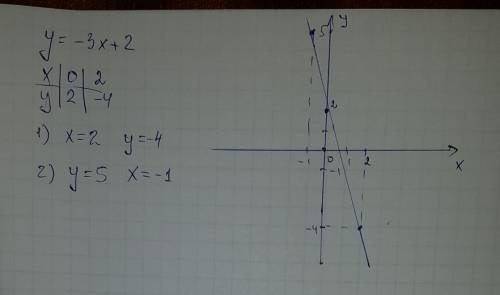 y = -3x+2
x | 0 | 2
y | 2 | -4
1) x=2 y=-4
2) y=5 x=-1
y
5
2
-1 0 1 2 x
-1
-4